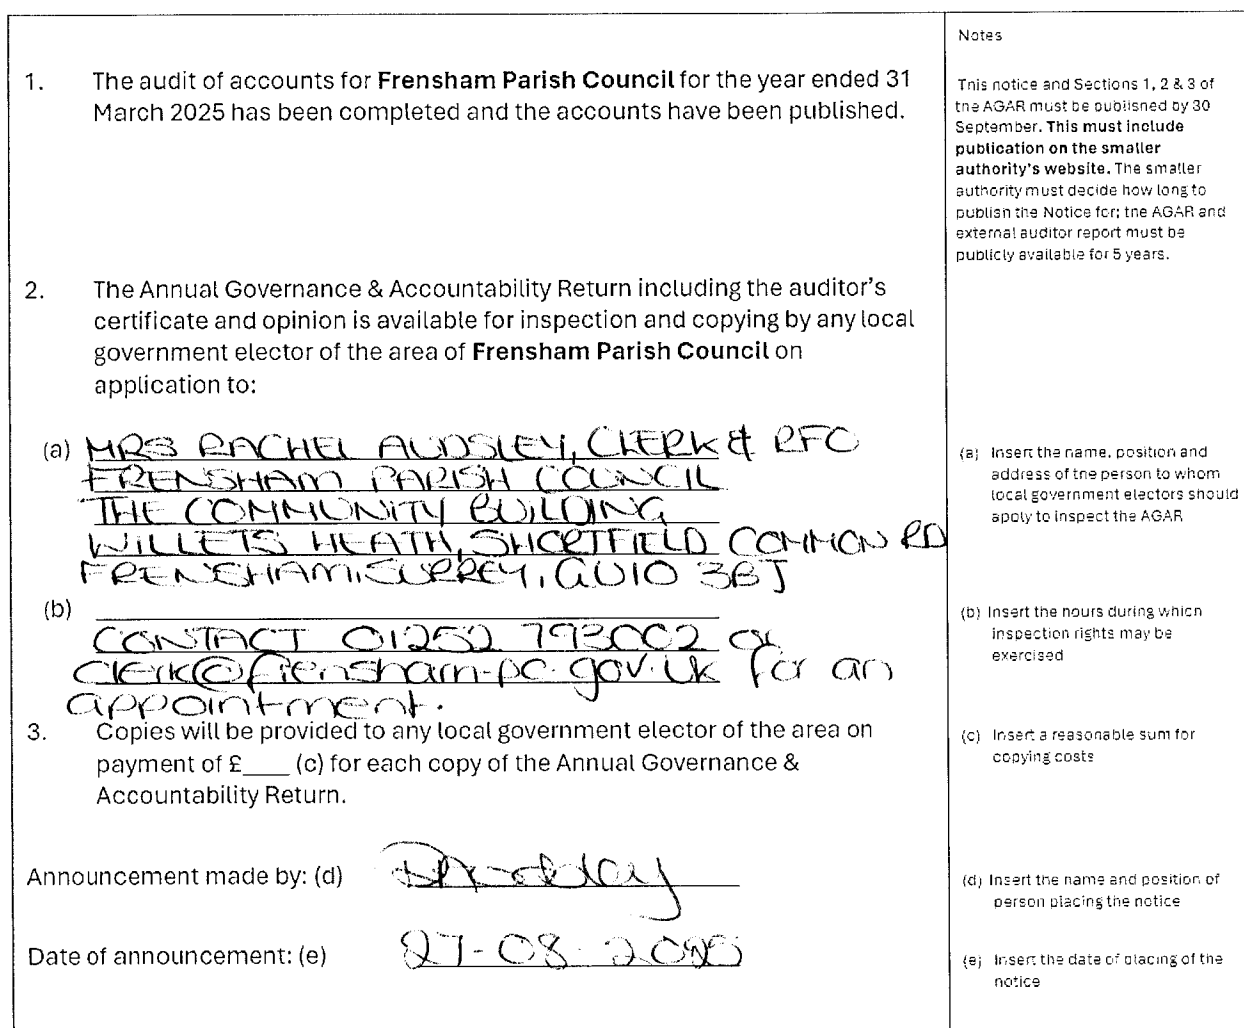 1. The audit of accounts for Frensham Parish Council for the year ended 31
March 2025 has been completed and the accounts have been published.
2. The Annual Governance & Accountability Return including the auditor's
certificate and opinion is available for inspection and copying by any local
government elector of the area of Frensham Parish Council on
application to:
(a) MRS RACHEL AUDSLEY, CLERK & RFO
FRENSHAM PARISH COUNCIL
THE COMMUNITY BUILDING
WILLETS HEATH, SHORTFIELD COMMON RD
FRENSHAM, SURREY, GU10 3BJ
(b)
CONTACT 01252 793002 or
clerk@frensham-pc.gov.uk for an
appointment.
3. Copies will be provided to any local government elector of the area on
payment of £____ (c) for each copy of the Annual Governance &
Accountability Return.
Announcement made by: (d)
Date of announcement: (e) 27-08-2025
Notes
This notice and Sections 1, 2 & 3 of
the AGAR must be published by 30
September. This must include
publication on the smaller
authority's website. The smaller
authority must decide how long to
publish the Notice for; the AGAR and
external auditor report must be
publicly available for 5 years.
(a) Insert the name, position and
address of the person to whom
local government electors should
apply to inspect the AGAR
(b) Insert the hours during which
inspection rights may be
exercised
(c) Insert a reasonable sum for
copying costs
(d) Insert the name and position of
person placing the notice
(e) Insert the date of placing of the
notice